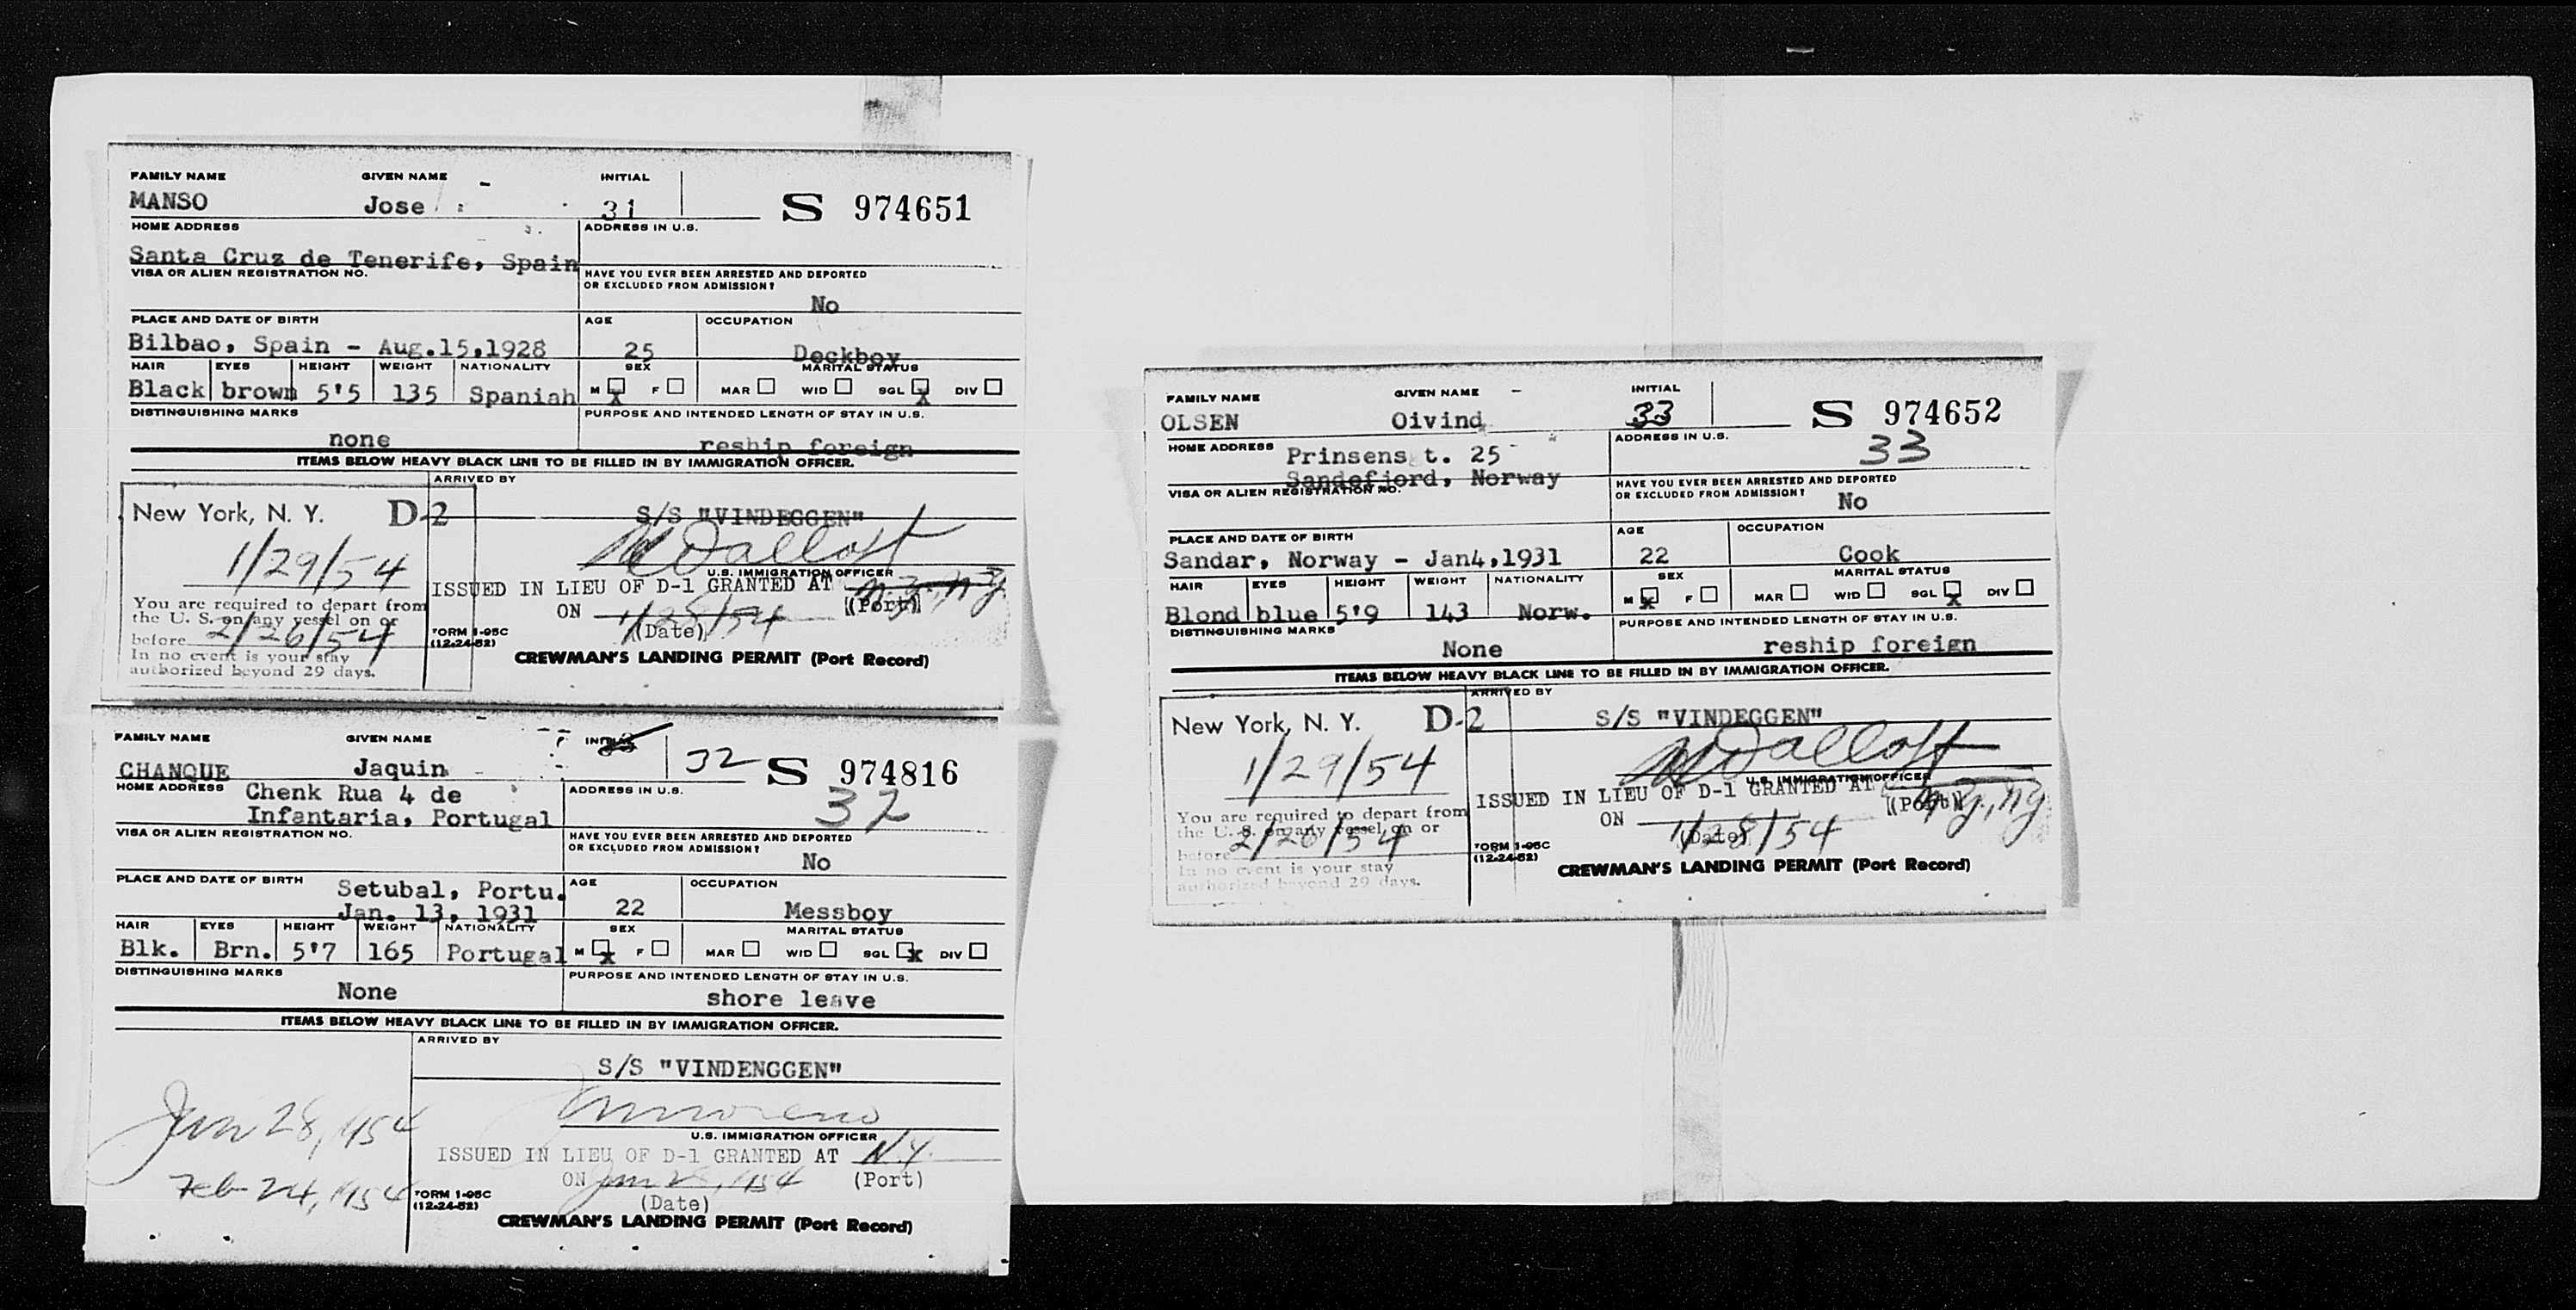 FAMILY NAME GIVEN NAME INITIAL
MANSO Jose 31 S 974651
HOME ADDRESS ADDRESS IN U.S.
Santa Cruz de Tenerife, Spain
VISA OR ALIEN REGISTRATION NO. HAVE YOU EVER BEEN ARRESTED AND DEPORTED
OR EXCLUDED FROM ADMISSION?
No
PLACE AND DATE OF BIRTH AGE OCCUPATION
Bilbao, Spain - Aug.15,1928 25 Deckboy
HAIR EYES HEIGHT WEIGHT NATIONALITY SEX MARITAL STATUS
Black brown 5'5 135 Spanish M X F MAR WID SGL X DIV
DISTINGUISHING MARKS PURPOSE AND INTENDED LENGTH OF STAY IN U.S.
none reship foreign
ITEMS BELOW HEAVY BLACK LINE TO BE FILLED IN BY IMMIGRATION OFFICER.
ARRIVED BY
New York, N. Y. D-2 S/S "VINDEGGEN"
1/29/54
U.S. IMMIGRATION OFFICER
ISSUED IN LIEU OF D-1 GRANTED AT N.Y., N.Y.
You are required to depart from
the U. S. on any vessel on or
before 2/26/54
ON 1/28/54 (Port)
(Date)
In no event is your stay
authorized beyond 29 days.
FORM I-95C
(12-24-52)
CREWMAN'S LANDING PERMIT (Port Record)
FAMILY NAME GIVEN NAME INITIAL
32
CHANQUE Jaquin S 974816
HOME ADDRESS Chenk Rua 4 de ADDRESS IN U.S. 32
Infantaria, Portugal
VISA OR ALIEN REGISTRATION NO. HAVE YOU EVER BEEN ARRESTED AND DEPORTED
OR EXCLUDED FROM ADMISSION?
No
PLACE AND DATE OF BIRTH Setubal, Portu. AGE OCCUPATION
Jan. 13, 1931 22 Messboy
HAIR EYES HEIGHT WEIGHT NATIONALITY SEX MARITAL STATUS
Blk. Brn. 5'7 165 Portugal M X F MAR WID SGL X DIV
DISTINGUISHING MARKS PURPOSE AND INTENDED LENGTH OF STAY IN U.S.
None shore leave
ITEMS BELOW HEAVY BLACK LINE TO BE FILLED IN BY IMMIGRATION OFFICER.
ARRIVED BY
S/S "VINDENGGEN"
Jan 28, 1954
U.S. IMMIGRATION OFFICER
ISSUED IN LIEU OF D-1 GRANTED AT N.Y.
ON Jan 28, 1954 (Port)
(Date)
Feb 24, 1954
FORM I-95C
(12-24-52)
CREWMAN'S LANDING PERMIT (Port Record)
FAMILY NAME GIVEN NAME INITIAL
OLSEN Oivind 33 S 974652
HOME ADDRESS Prinsens t. 25 ADDRESS IN U.S. 33
Sandefjord, Norway
VISA OR ALIEN REGISTRATION NO. HAVE YOU EVER BEEN ARRESTED AND DEPORTED
OR EXCLUDED FROM ADMISSION? No
PLACE AND DATE OF BIRTH AGE OCCUPATION
Sandar, Norway - Jan4,1931 22 Cook
HAIR EYES HEIGHT WEIGHT NATIONALITY SEX MARITAL STATUS
Blond blue 5'9 143 Norw. M X F MAR WID SGL X DIV
DISTINGUISHING MARKS PURPOSE AND INTENDED LENGTH OF STAY IN U.S.
None reship foreign
ITEMS BELOW HEAVY BLACK LINE TO BE FILLED IN BY IMMIGRATION OFFICER.
ARRIVED BY
New York, N. Y. D-2 S/S "VINDEGGEN"
1/29/54
U.S. IMMIGRATION OFFICER
ISSUED IN LIEU OF D-1 GRANTED AT N.Y., N.Y.
You are required to depart from
the U. S. on any vessel on or
before 2/26/54
ON 1/28/54 (Port)
(Date)
In no event is your stay
authorized beyond 29 days.
FORM I-95C
(12-24-52)
CREWMAN'S LANDING PERMIT (Port Record)